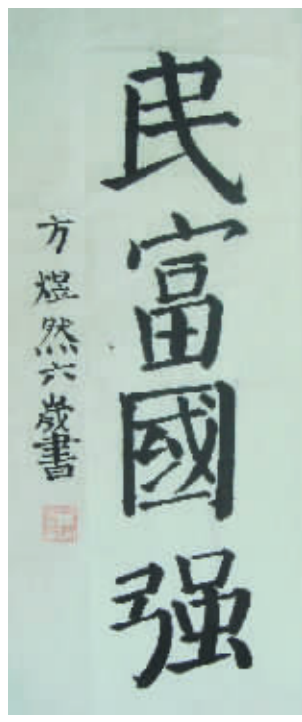 民富國强
方煜然六歲書